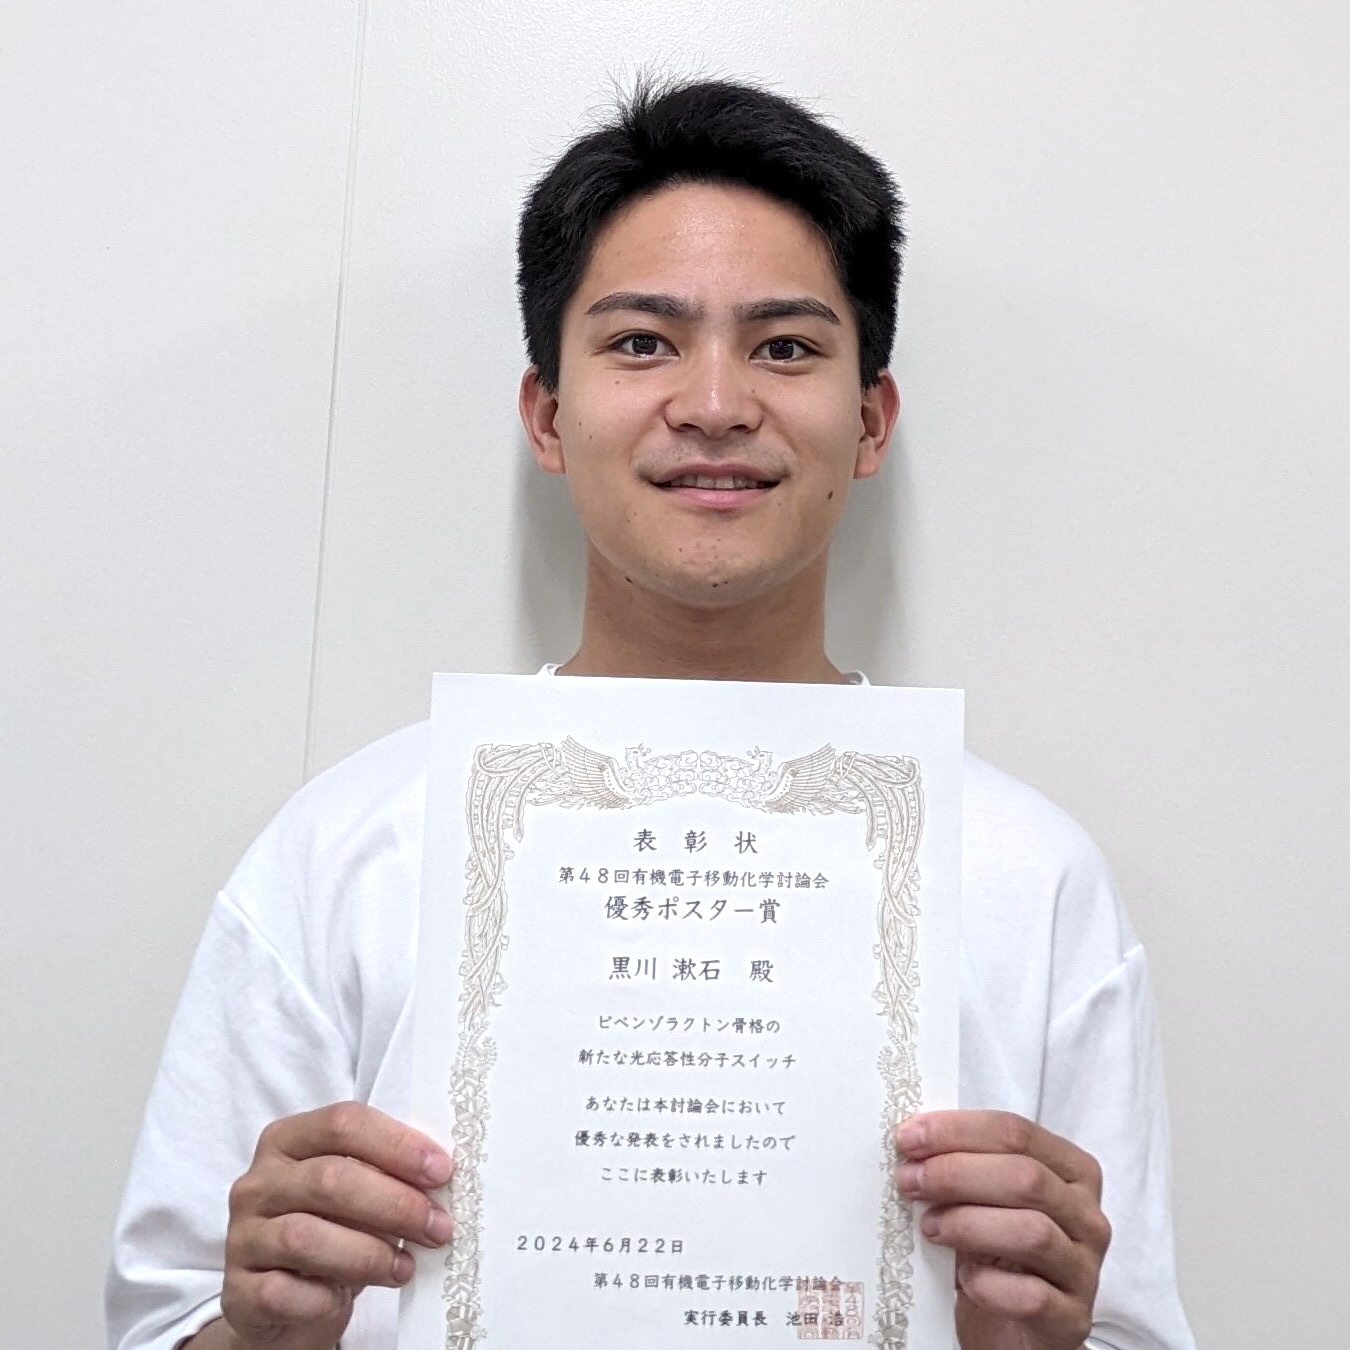 表彰状
第４８回有機電子移動化学討論会
優秀ポスター賞
黒川 漱石 殿
ビベンゾラクトン骨格の
新たな光応答性分子スイッチ
あなたは本討論会において
優秀な発表をされましたので
ここに表彰いたします
２０２４年６月２２日
第４８回有機電子移動化学討論会
実行委員長 池田 浩